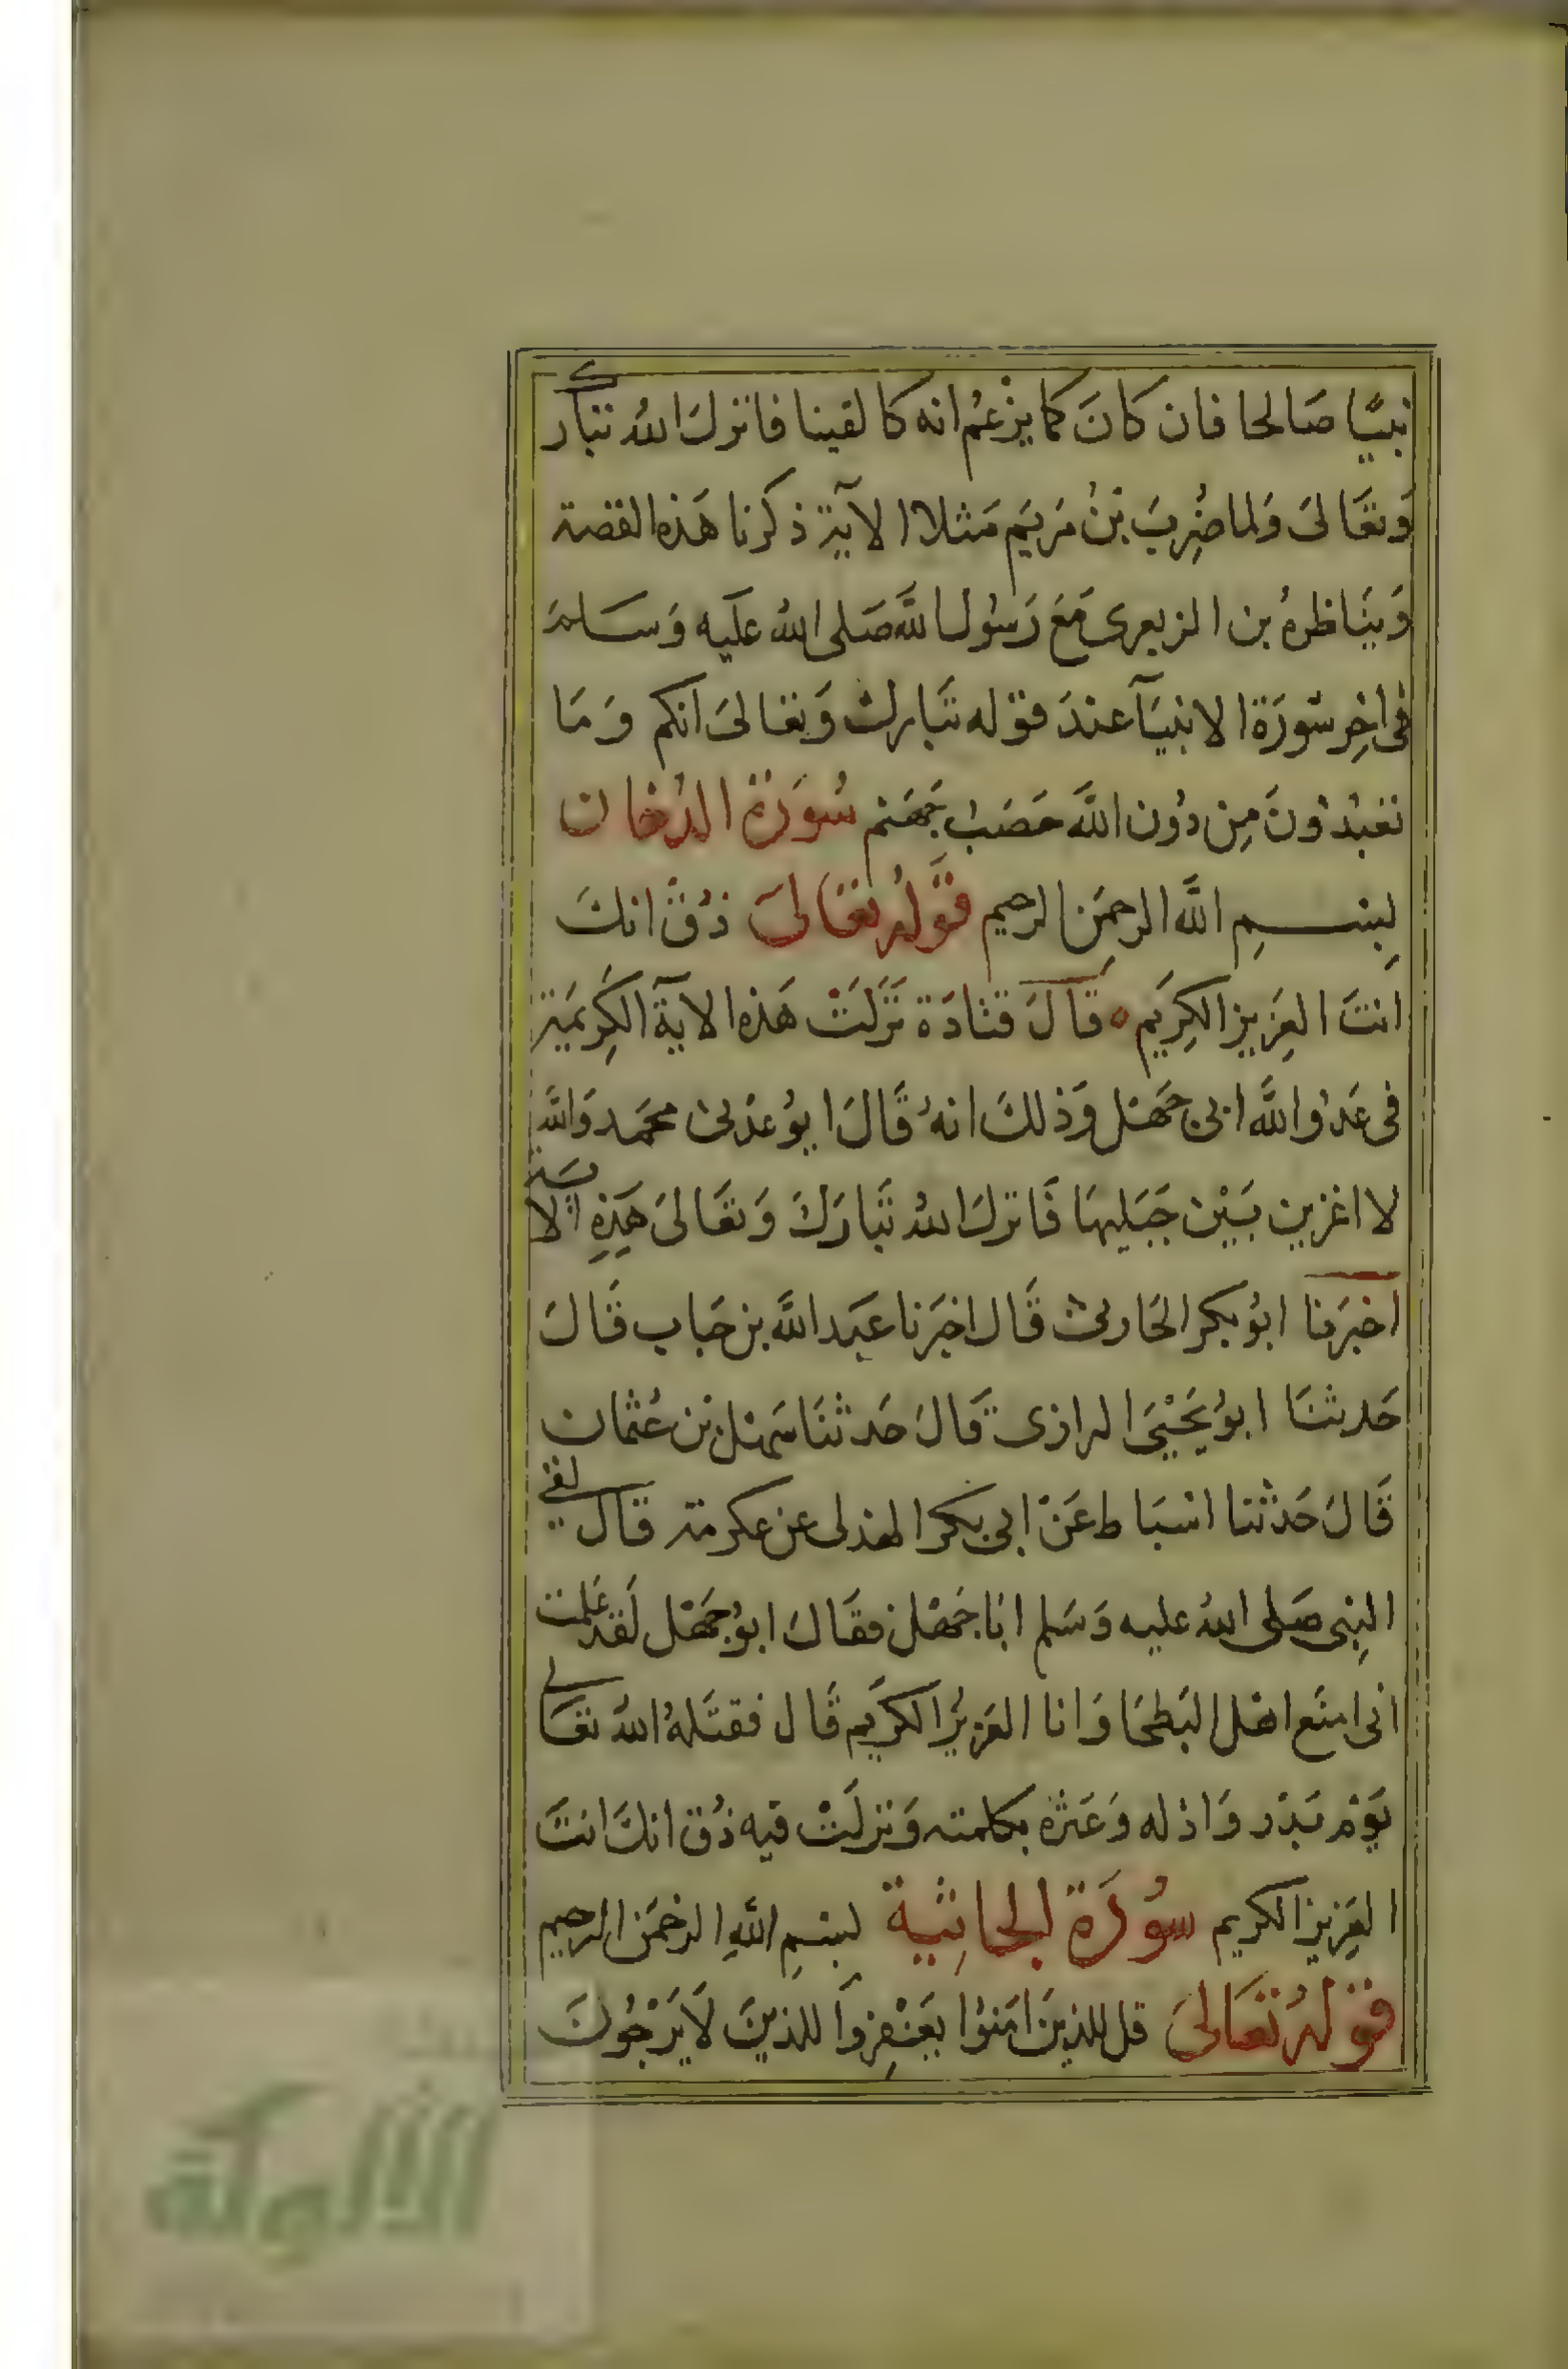 نبيًا صَالحا فان كانَ كما يزْعمُ انه كا لقينا فانزلَ اللهُ تبارك
وَتعَالىَ وَلما ضُرِبَ بْنُ مَريَم مَثلا الآيَة ذكَرنا هَذه القصة
وَيناظرهُ بن الزبعرى مَعَ رَسُول اللَّه صَلى اللهُ علَيه وَسَلم
فى اخِر سُورَة الانبيَآ عندَ قوْله تبَارك وَتعَالىَ انكم وَمَا
تعبدُونَ مِن دُون اللَّه حَصَبُ جَهَنم سُورَة الدُخان
بِسْمِ اللَّه الرحمَن الرحيم قَوْلهُ تعَالىَ ذُقْ انكَ
انتَ العَزِيز الكِريَم ٥ قَالَ قتادَة نَزَلَتْ هَذه الايَة الكِريمَة
فى عَدُو اللَّه ابى جَهْل وَذلكَ انهُ قَالَ ايُوعدنى محمَد وَاللَّه
لا اعَز بين بَيْن جَبَليهَا فَانزلَ اللهُ تبَارَكَ وَتعَالىَ هَذِهِ الاية
اخبَرنا ابوُ بكر الحَارثى قَال اخبَرنا عَبَد اللَّه بن حَباب قَالَ
حَدثنَا ابوُ يَحْيىَ الرازى قَالَ حَدثنَا سَهْل بْن عُثمان
قَالَ حَدثنا اسْبَاط عَنْ ابى بَكر الهذلى عن عكرمة قال لقي
النِبى صَلى اللهُ عليه وَسَلم ابَا جَهْل فقَالَ ابوُ جَهْل لَقد عَلمت
انى امنَع اهْل البَطحَا وَانا العَزيزُ الكرَيم قَال فقتَلهُ اللهُ تعَالى
يَوْم بَدْر وَاذله وَعَيَّرهُ بكلمته وَنزلَتْ فيه ذُق انكَ انتَ
العَزِيز الكريم سُورَة الجاثِية بِسْمِ اللَّهِ الرحْمَن الرحيم
قوْلهُ تعَالىَ قل للذينَ امَنوُا يَغْفِروُا للذينَ لاَ يَرْجُونَ
الألوكة